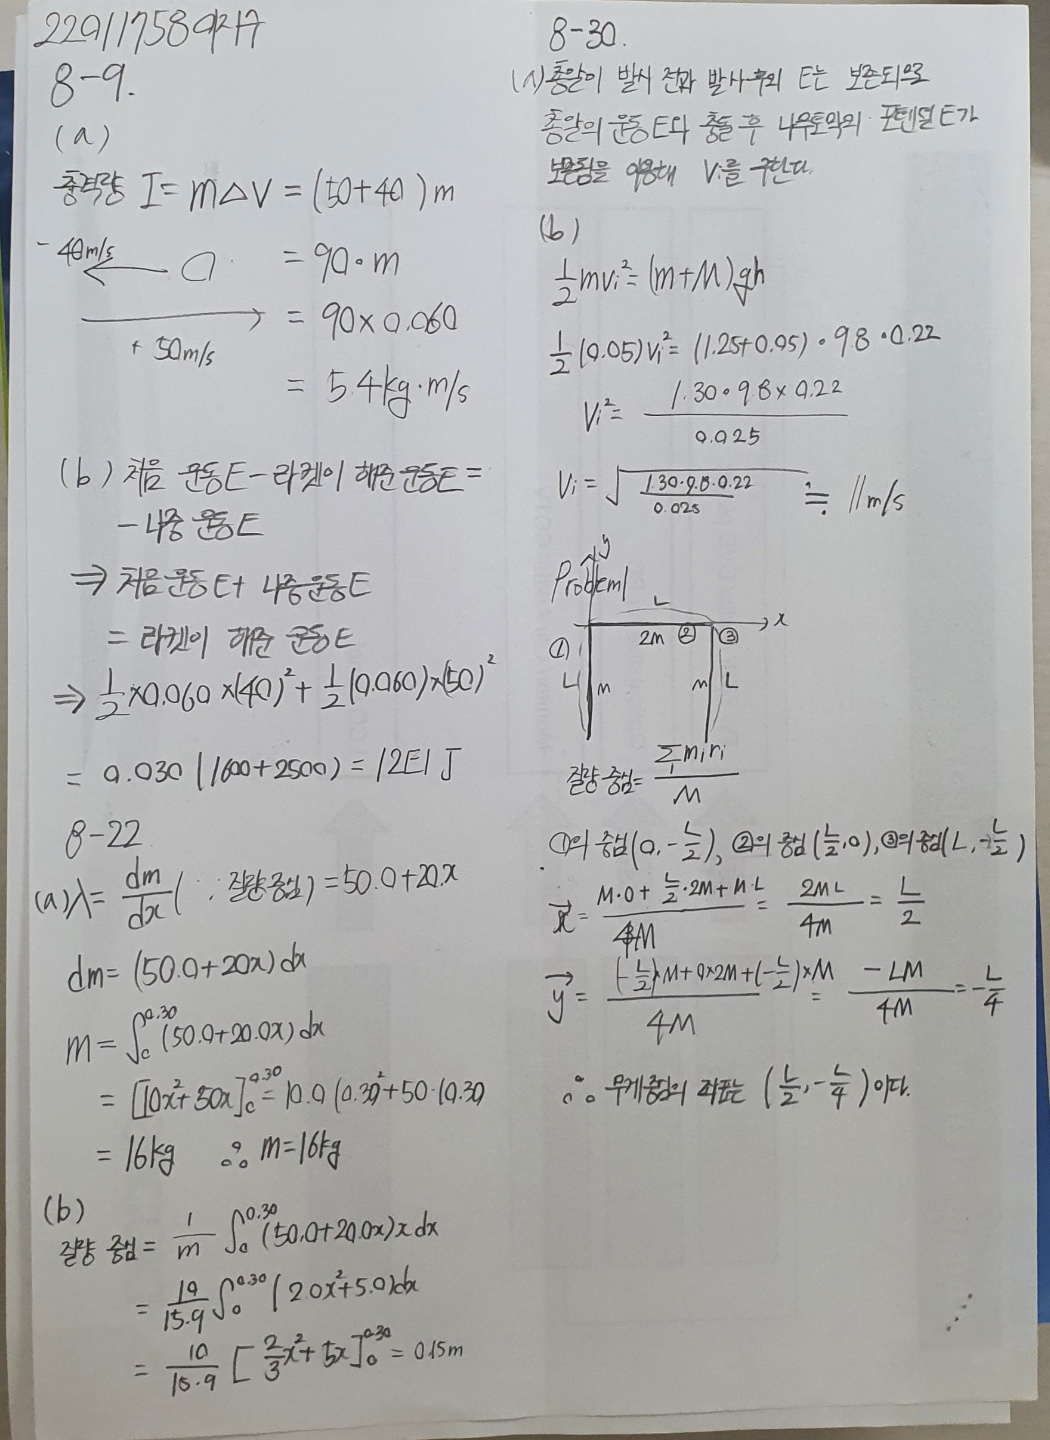 8-9.
(a)
충격량 I = m△V = (50+40)m
-40m/s
= 90·m
= 90×0.060
+50m/s
= 5.4kg·m/s
(b) 처음 운동E-라켓이 해준 운동E=
-나중 운동E
⇒ 처음운동E+ 나중운동E
= 라켓이 해준 운동E
⇒ 1/2×0.060×(40)²+1/2(0.060)×(50)²
= 0.030(1600+2500) = 12E1 J
8-22
(a) λ= dm/dx (∵ 질량중심) = 50.0+20.x
dm= (50.0+20x)dx
m= ∫₀^0.30 (50.0+20.0x)dx
= [10x²+50x]₀^0.30 = 10.0(0.30)²+50·(0.30)
= 16kg ∴ m=16kg
(b)
질량 중심 = 1/m ∫₀^0.30 (50.0+20.0x)x dx
= 10/15.9 ∫₀^0.30 (2.0x²+5.0)dx
= 10/15.9 [2/3x²+5x]₀^0.30 = 0.15m
8-30.
(a) 총알이 발사 전과 발사후의 E는 보존되므로
총알의 운동E와 충돌 후 나무토막의 포텐셜E가
보존됨을 이용해 Vi를 구한다.
(b)
1/2mvi²=(m+M)gh
1/2(0.05)vi²= (1.25+0.05)·9.8·0.22
Vi²= 1.30·9.8×0.22/0.025
Vi= √(1.30·9.8·0.22/0.025) ≒ 11m/s
Problem1
y
L
x
① 2m ② ③
L m m L
질량중심= Σmiri/M
①의 중심(0,-L/2), ②의 중심(L/2,0), ③의 중심(L,-L/2)
x⃗= M·0+L/2·2M+M·L/4M = 2ML/4M = L/2
y⃗= (-L/2)×M+0×2M+(-L/2)×M/4M = -LM/4M = -L/4
∴ 무게중심의 좌표는 (L/2,-L/4)이다.